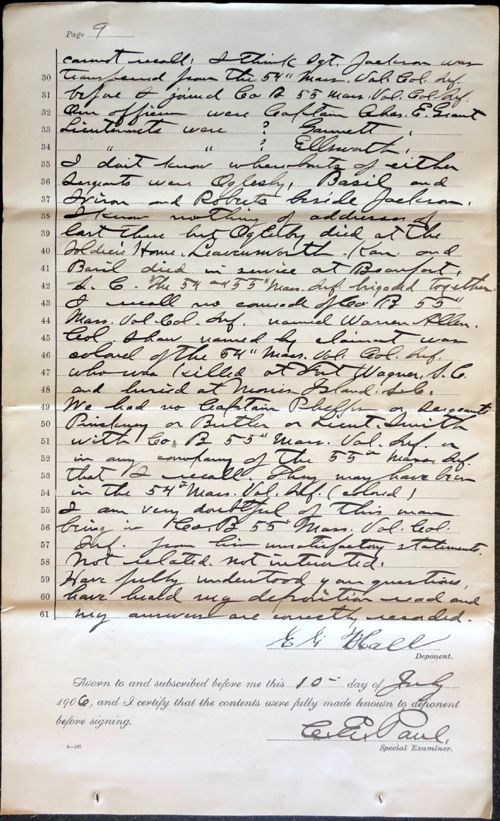 Page 9
cannot recall. I think Sgt. Jackson was
30 transferred from the 54" Mass. Vol. Col. Inf.
31 before I joined Co B 55 Mass. Vol. Col Inf.
32 Our officers were Captain Chas. E. Grant
33 Lieutenants were ? Garnett,
34 " " ? Ellsworth,
35 I don't know whereabouts of either
36 Sergeants were Oglesby, Basil and
37 and Roberts beside Jackson.
38 I know nothing of addresses of
39 last three but Oglesby died at the
40 Soldiers Home, Leavenworth, Kan. and
41 Basil died in service at Beaufort,
42 S. C. The 54 and 55" Mass. Inf. brigaded together.
43 I recall no comrade of Co B 55"
44 Mass. Vol. Col. Inf. named Warren Allen.
45 Col. Shaw named by claimant was
46 colonel of the 54" Mass. Vol. Col. Inf.
47 who was killed at Fort Wagner, S. C.
48 and buried at Morris Island, S.C.
49 We had no Captain or Sergeants
50 Pinckney or Butler or Lieut. Smith
51 with Co. B 55" Mass. Vol. Inf. or
52 in any company of the 55" Mass. Inf.
53 that I recall. They may have been
54 in the 54" Mass. Vol. Inf. (colored)
55 I am very doubtful of this man
56 being in Co. B 55" Mass. Vol. Col.
57 Inf. from his unsatisfactory statements.
58 Not related, not interested.
59 Have fully understood your questions,
60 have heard my deposition read and
61 my answers are correctly recorded.
Hall
Deponent.
Sworn to and subscribed before me this 10 day of July
1906, and I certify that the contents were fully made known to deponent
before signing.
C. E. Paul,
Special Examiner.